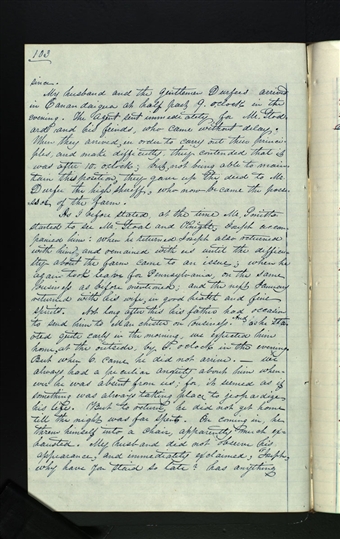 103
since.
My husband and the gentlemen Durfees arrived
in Canandaigua at half past 9 o'clock in the
evening. The agent sent immediately for Mr. Stod
ard and his friends, who came without delay;
When they arrived, in order to carry out their princi
ples, and make difficulty, they contended that it
was after 10 o'clock; but, not being able to main
tain this position, they gave up the deed to Mr.
Durfee the high sheriff; who now became the posse
ssor of the farm.
As I before stated, at the time Mr. Smith
started to see Mr. Stoal and Knight, Joseph accom
panied him; when he returned Joseph also returned
with him, and remained with us until the difficu
lty about the farm came to an issue; when he
again took leave for Pennsylvania, on the same
business as before mentioned; and the next January
returned with his wife, in good health and fine
spirits. Not long after this his father had occasion
to send him to Manchester on business. And as he star
ted quite early in the morning, we expected him
home, at the outside, by six o'clock in the evening.
But when 6. came, he did not arrive. — we
always had a peculiar anxiety about him when
ever he was absent from us; for, it seemed as if
something was always taking place to jeopardize
his life. But to return, he did not get home
till the night was far spent. On coming in, he
threw himself into a chair, apparently much ex
hausted. My husband did not observe his
appearance, and immediately exclaimed, Joseph,
why have you staid so late? has anything